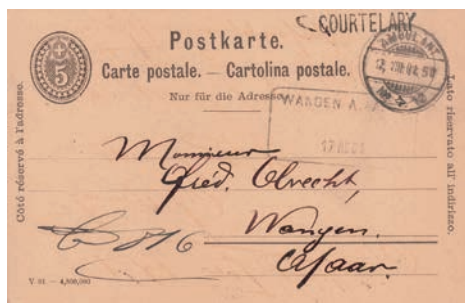 COURTELARY
Postkarte.
5
Carte postale. — Cartolina postale.
AMBULANT
Nur für die Adresse.
WANGEN A.
Côté réservé à l'adresse.
Lato riservato all' indirizzo.
Monsieur
Fréd. Obrecht,
Wangen.
a/aar.
V. 91. — 4,800,000